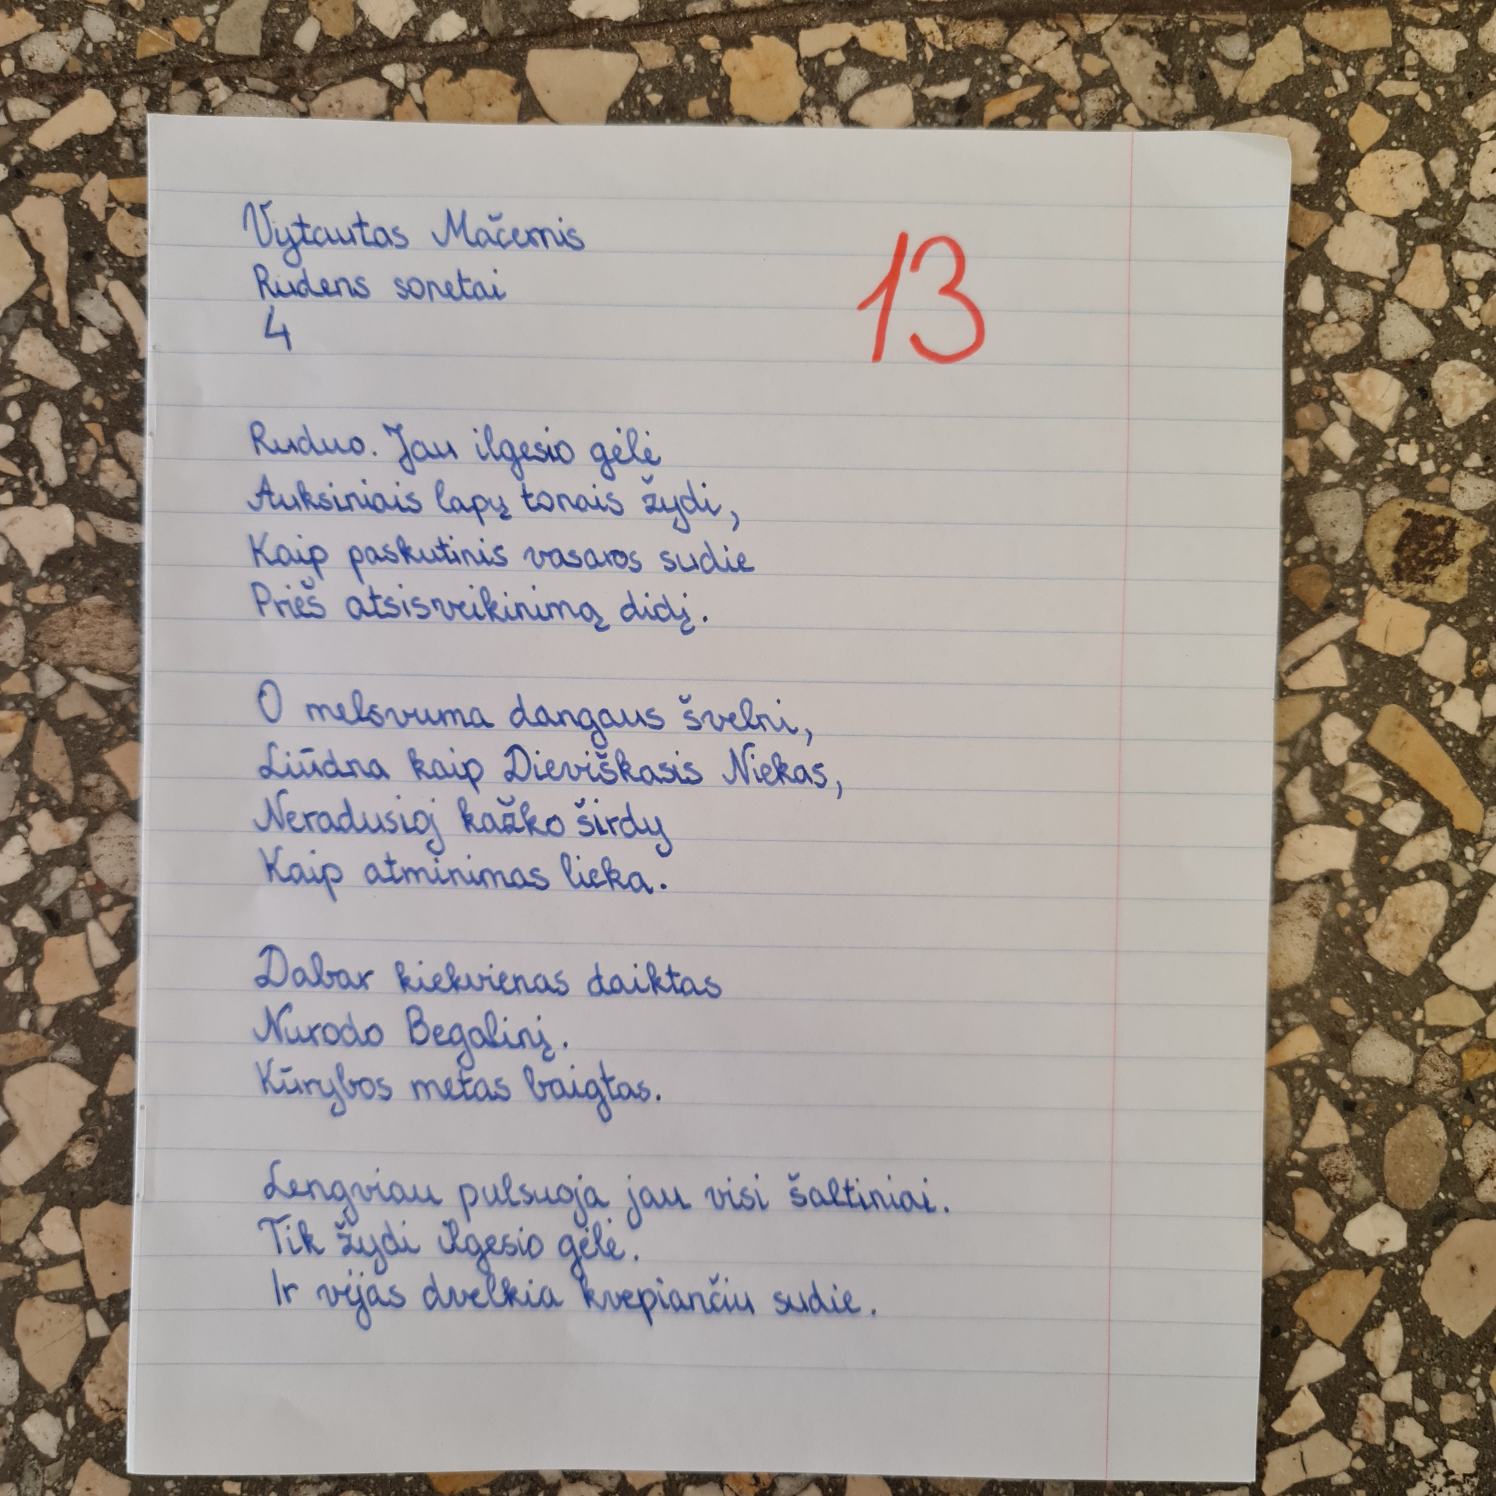 Vytautas Mačernis
13
Rudens sonetai
4
Ruduo. Jau ilgesio gėlė
Auksiniais lapų tonais žydi,
Kaip paskutinis vasaros sudie
Prieš atsisveikinimą didį.
O melsvuma dangaus švelni,
Liūdna kaip Dieviškasis Niekas,
Neradusioj kažko širdy
Kaip atminimas lieka.
Dabar kiekvienas daiktas
Nurodo Begalinį.
Kūrybos metas baigtas.
Lengviau pulsuoja jau visi šaltiniai.
Tik žydi ilgesio gėlė.
Ir vėjas dvelkia kvepiančiu sudie.